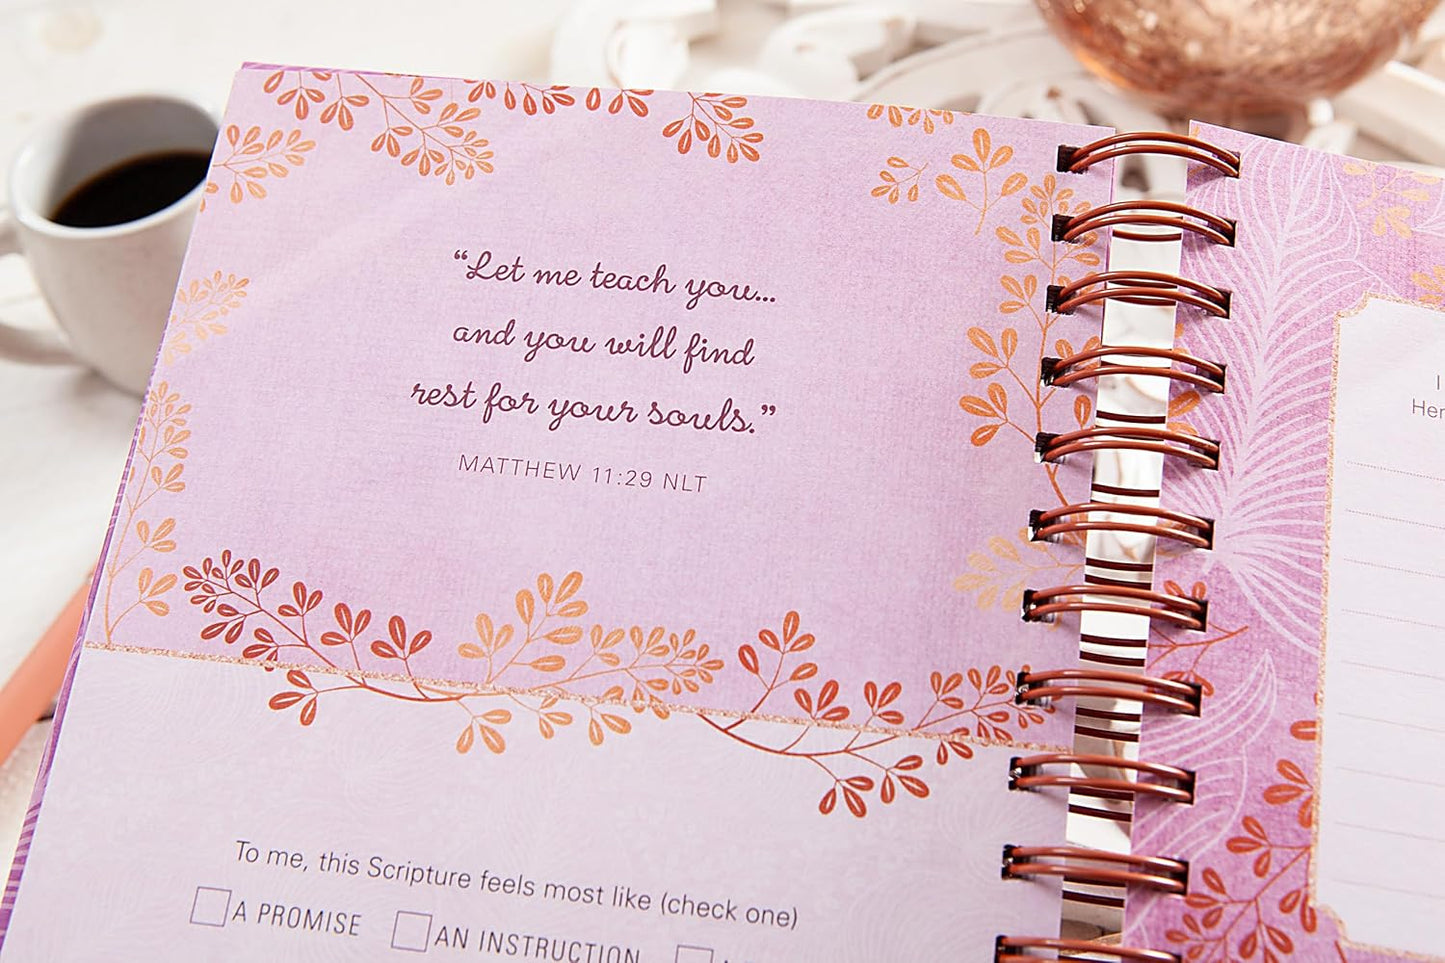 “Let me teach you...
and you will find
rest for your souls.”
MATTHEW 11:29 NLT
To me, this Scripture feels most like (check one)
A PROMISE AN INSTRUCTION
I